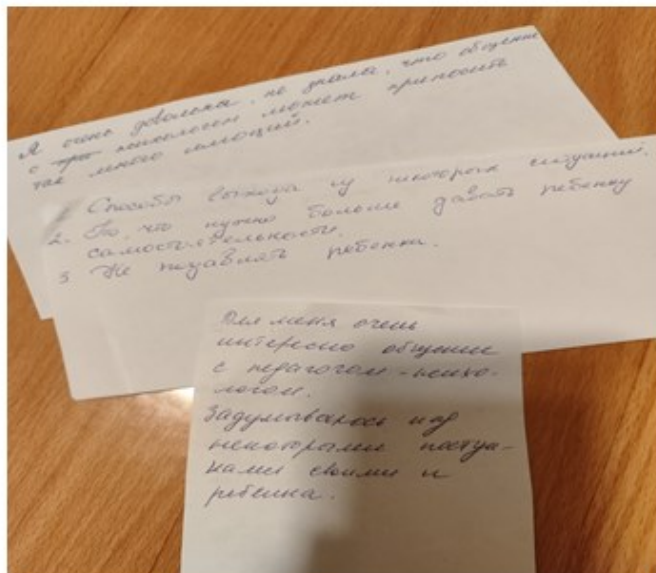 Я очень довольна, не знала, что общение
с психологом может приносить
так много эмоций.
Способы выхода из некоторых ситуаций.
2. То, что нужно больше давать ребенку
самостоятельности.
3. Не подавлять ребенка.
Для меня очень
интересно общение
с педагогом-психо-
логом.
Задумываюсь над
некоторыми поступ-
ками своими и
ребенка.